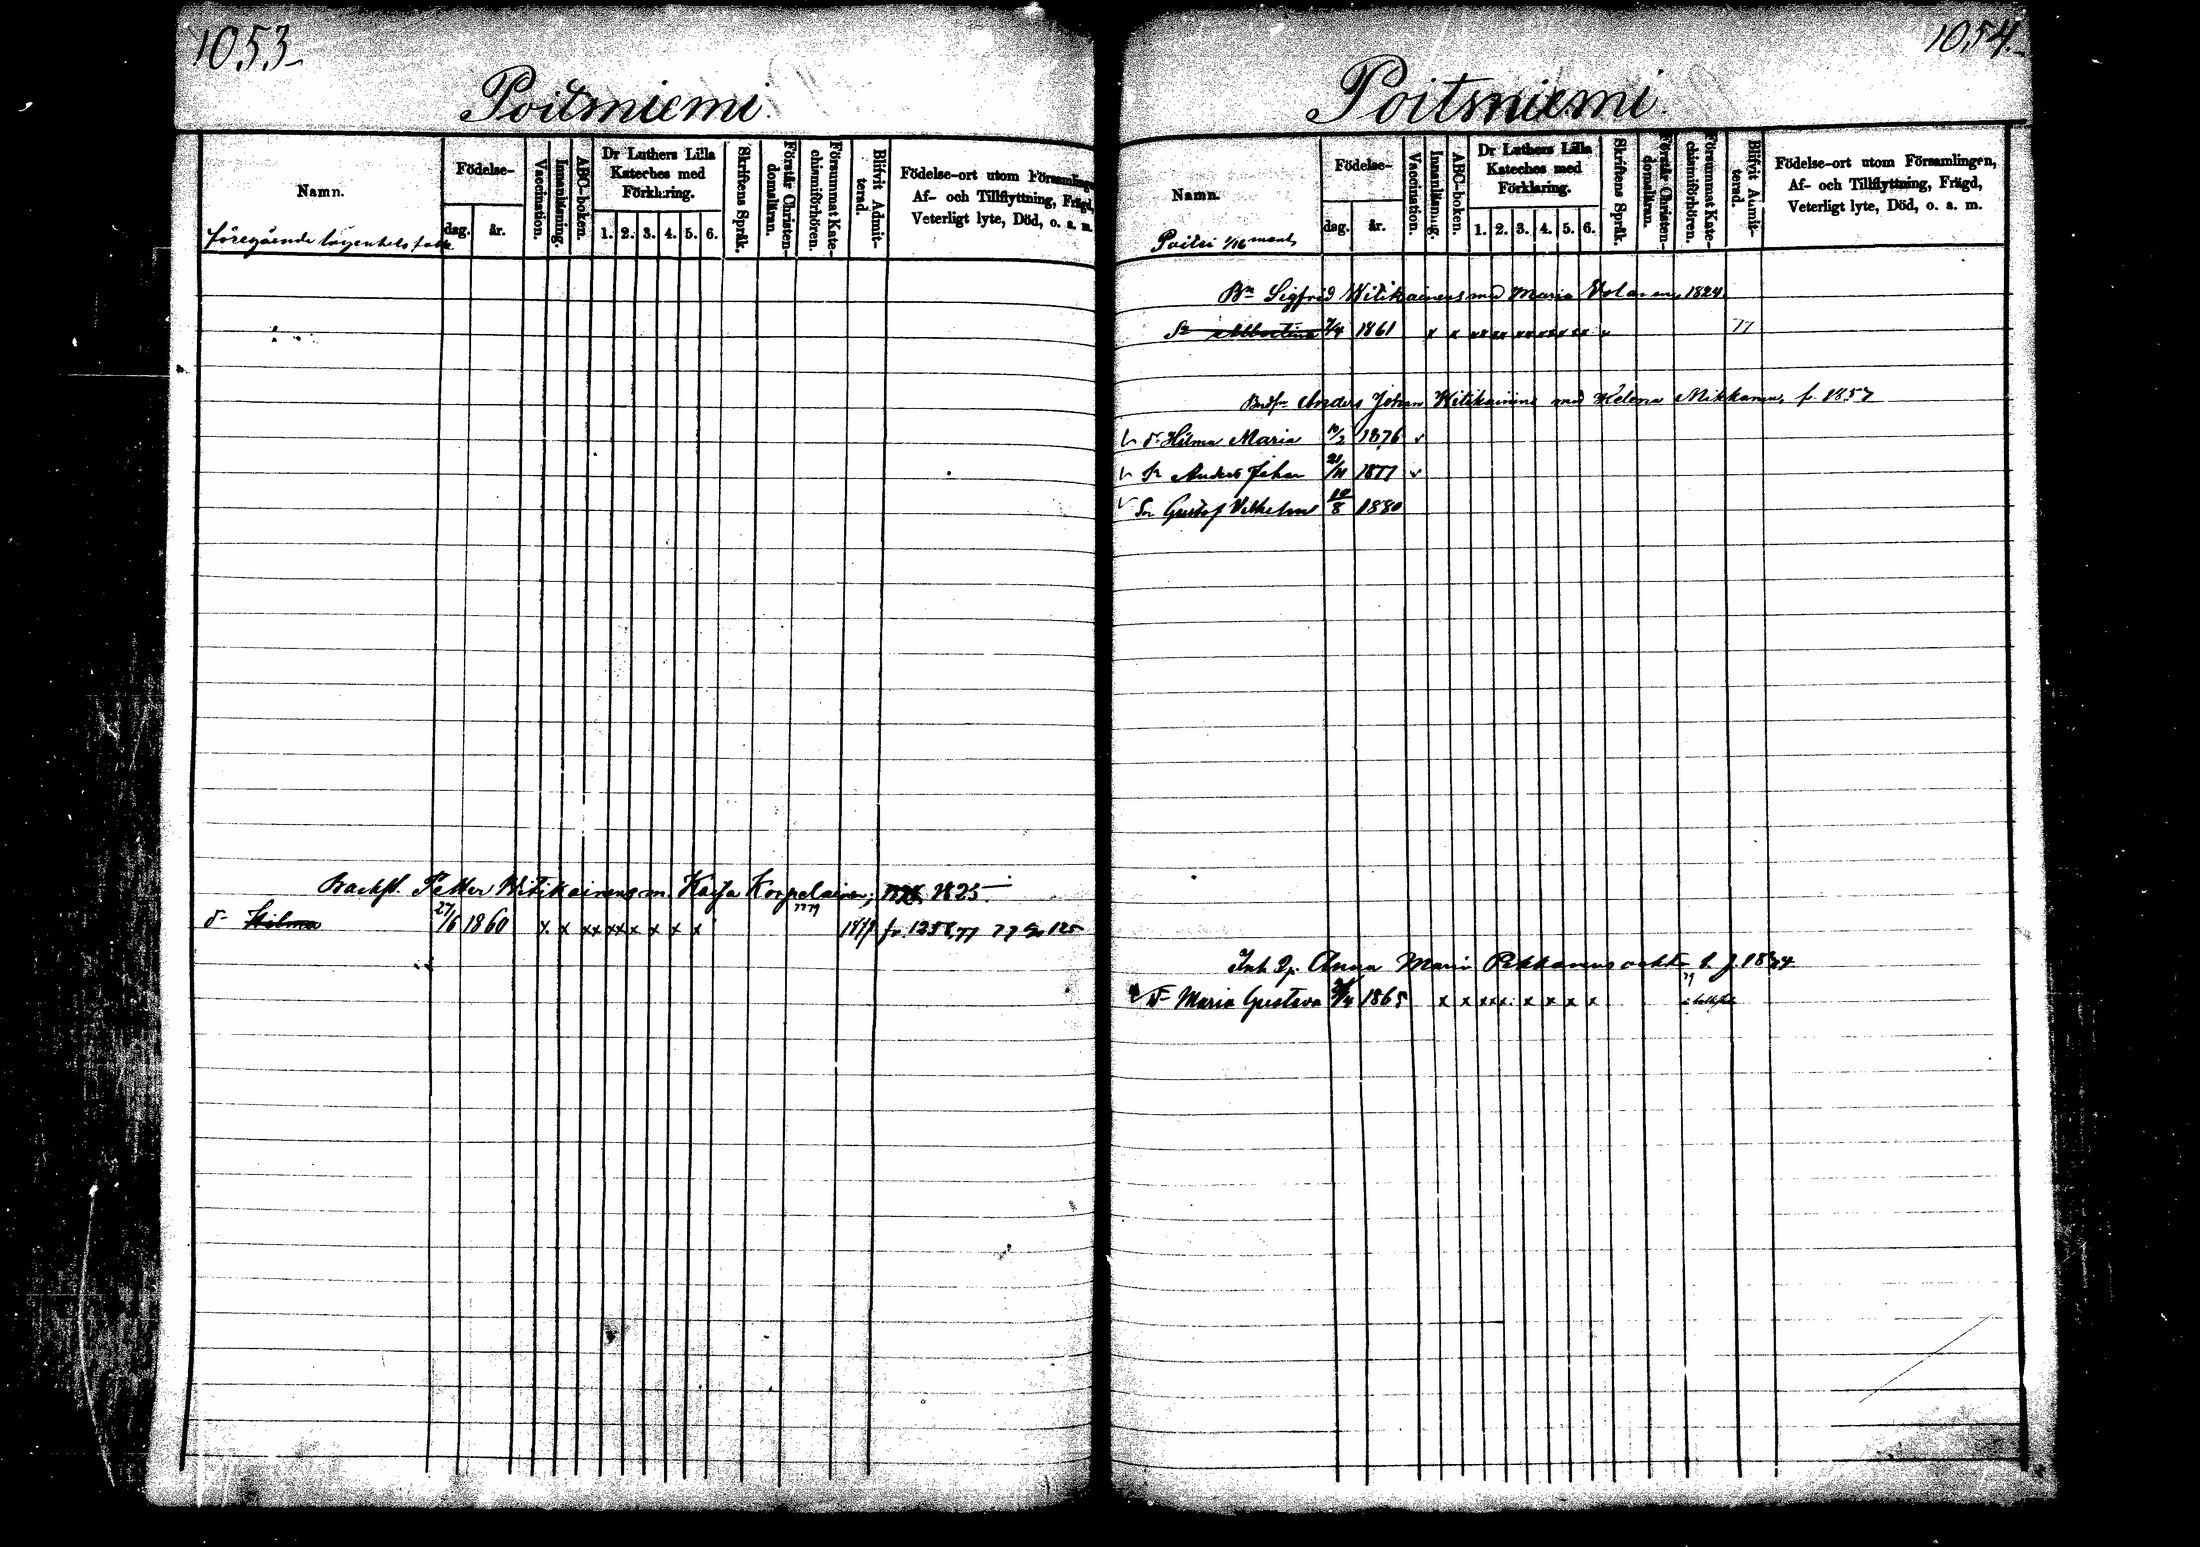 1053
Poitsniemi.
Namn.
Födelse-
dag.
år.
Vaccination.
Innanläsning.
ABC-boken.
Dr Luthers Lilla Kateches med Förklaring.
1. 2. 3. 4. 5. 6.
Skriftens Språk.
Förstår Christendomsläran.
Försummat Katechismiförhören.
Blifvit Admitterad.
Födelse-ort utom Församlingen,
Af- och Tillflyttning, Frägd,
Veterligt lyte, Död, o. a. m.
föregående lägenhets folk
Petter Witikainens m. Kaisa Korpelainen; 1825
d- Hilma 27/6 1860 x x xx xx x x x x 1879 fr. 125
1054.
Poitsniemi.
Namn.
Födelse-
dag.
år.
Vaccination.
Innanläsning.
ABC-boken.
Dr Luthers Lilla Kateches med Förklaring.
1. 2. 3. 4. 5. 6.
Skriftens Språk.
Förstår Christendomsläran.
Försummat Katechismiförhören.
Blifvit Admitterad.
Födelse-ort utom Församlingen,
Af- och Tillflyttning, Frägd,
Veterligt lyte, Död, o. a. m.
Poitsi 1/16 mant.
Bn Sigfrid Witikainens med Maria 1824
Albertina 1861 x x xx xx xx xx xx xx 77
Anders Johan Witikainens med Helena Mikkanen, f. 1857
d- Hilma Maria 1876
Sn Anders Johan 21/11 1877
Sn Gustaf Vilhelm 10/8 1880
Inh. Anna Maria Pekkanens
d- Maria Gustava 1865 x x xxx x x x x